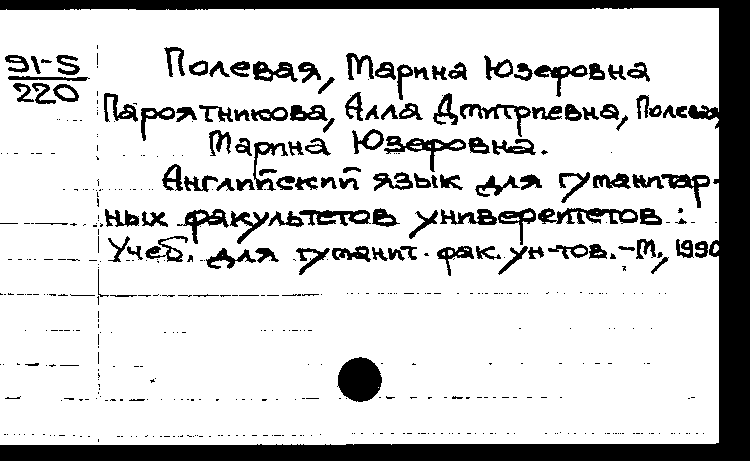 91-5
220
Полевая, Марина Юзефовна
Пароятникова, Алла Дмитриевна, Полевая,
Марина Юзефовна.
Английский язык для гуманитар-
ных факультетов университетов :
Учеб. для гуманит. фак. ун-тов. – М., 1990